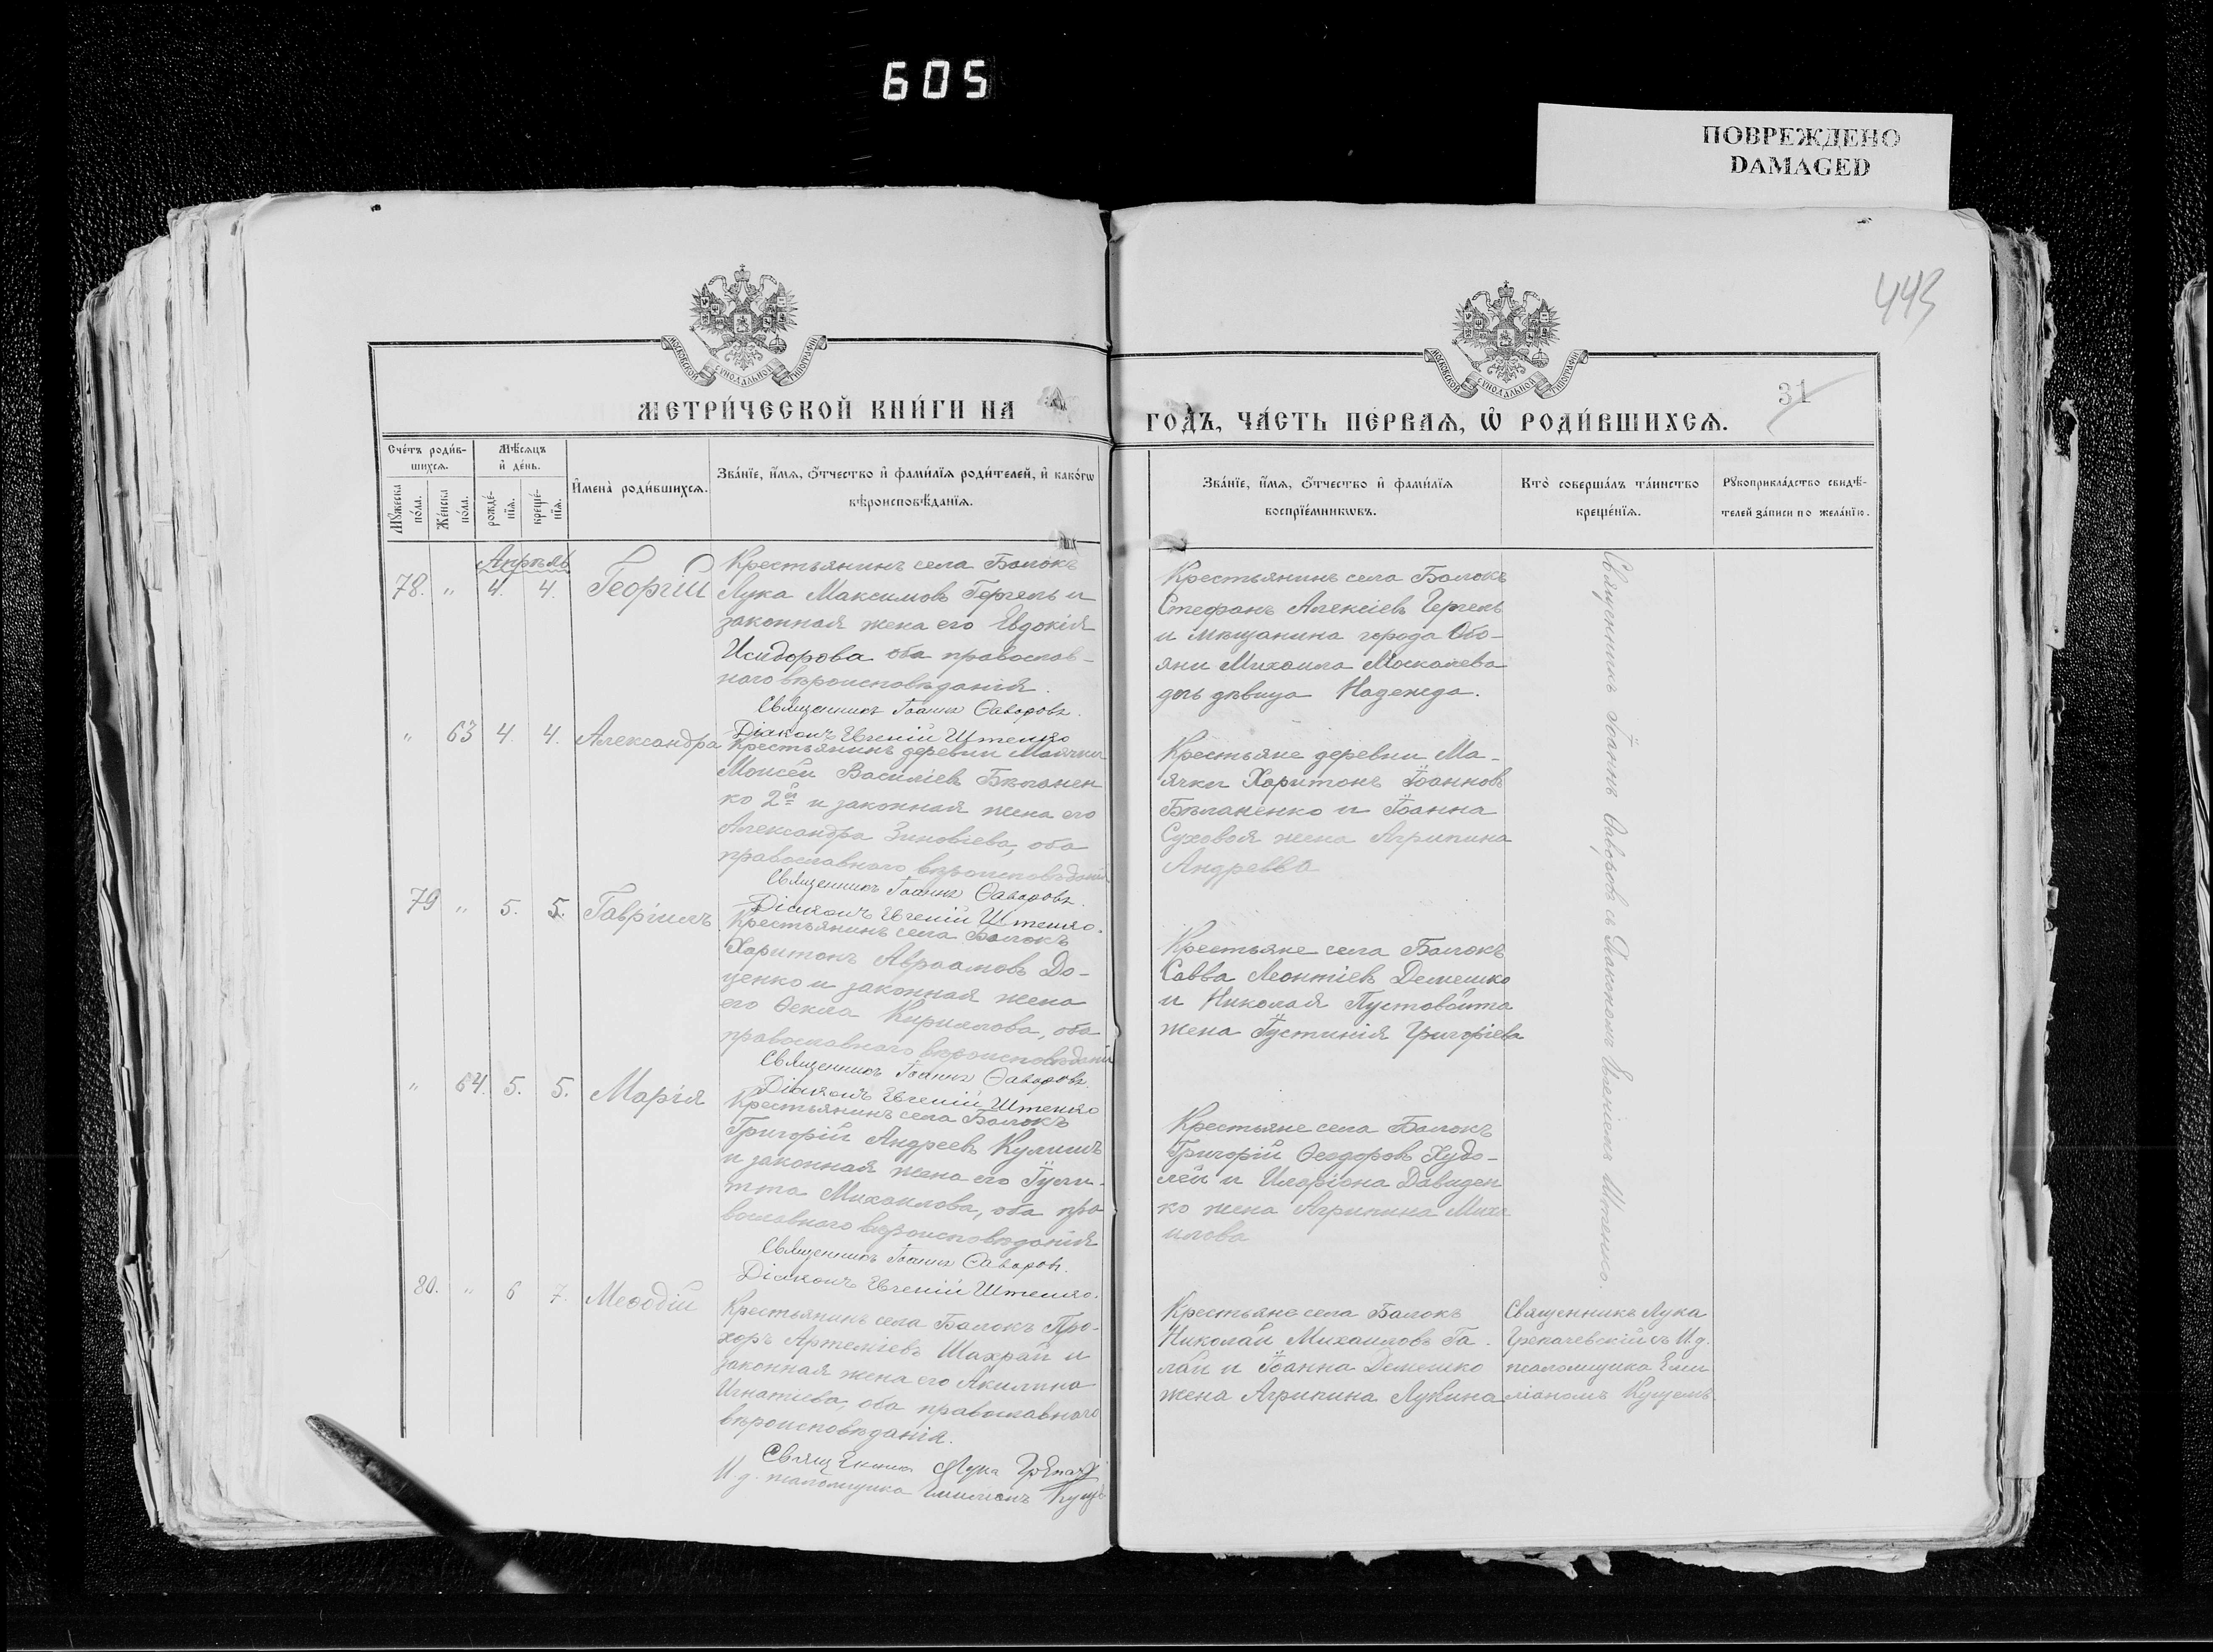 605
ПОВРЕЖДЕНО
DAMAGED
443
МОСКОВСКОЙ СѴНОДАЛЬНОЙ ТИПОГРАФІИ
МОСКОВСКОЙ СѴНОДАЛЬНОЙ ТИПОГРАФІИ
31
МЕТРИ́ЧЕСКОЙ КНИ́ГИ НА
ГОДЪ, ЧА́СТЬ ПЕ́РВАѦ, Ѡ҆ РОДИ́ВШИХСѦ.
Сче́тъ роди́в-
шихсѧ.
Мѣ́сѧцъ
и҆ де́нь.
И҆мена̀ роди́вшихсѧ.
Зва́нїе, и҆́мѧ, о҆́тчество и҆ фами́лїѧ роди́телей, и҆ како́гѡ
вѣроисповѣ́данїѧ.
Мꙋ́жеска
по́ла.
Же́нска
по́ла.
рожде́-
нїѧ.
креще́-
нїѧ.
Зва́нїе, и҆́мѧ, о҆́тчество и҆ фами́лїѧ
воспрїе́мникѡвъ.
Кто̀ соверша́лъ та́инство
креще́нїѧ.
Рꙋкоприкла́дство свидѣ́-
телей за́писи по жела́нїю.
Апрѣль
78. " 4. 4. Георгій
Крестьянинъ села Балокъ
Лука Максимовъ Гергель и
законная жена его Евдокія
Исидорова оба православ-
наго вѣроисповѣданія.
Священникъ Іоаннъ Ѳаворовъ.
Діаконъ Евгеній Штенко
Крестьянинъ села Балокъ
Стефанъ Алексіевъ Гергель
и мѣщанина города Обо-
яни Михаила Москалева
дочь дѣвица Надежда.
Священникъ Іоаннъ Ѳаворовъ съ Діакономъ Евгеніемъ Штенко.
" 63 4. 4. Александра
Крестьянинъ деревни Маячки
Моисей Василіевъ Бѣланен
ко 2й и законная жена его
Александра Зиновіева, оба
православнаго вѣроисповѣданія
Священникъ Іоаннъ Ѳаворовъ.
Діаконъ Евгеній Штенко.
Крестьяне деревни Ма-
ячки Харитонъ Іоанновъ
Бѣланенко и Іоанна
Суховоя жена Агрипина
Андреева
79 " 5. 5. Гавріилъ
Крестьянинъ села Балокъ
Харитонъ Авраамовъ До-
ценко и законная жена
его Ѳекла Кирилова, оба
православнаго вѣроисповѣданія
Священникъ Іоаннъ Ѳаворовъ.
Діаконъ Евгеній Штенко
Крестьяне села Балокъ
Савва Леонтіевъ Демешко
и Николая Пустовойта
жена Іустинія Григоріева
" 64. 5. 5. Марія
Крестьянинъ села Балокъ
Григорій Андреевъ Кулишъ
и законная жена его Іули-
тта Михаилова, оба пра
вославнаго вѣроисповѣданія
Священникъ Іоаннъ Ѳаворовъ.
Діаконъ Евгеній Штенко.
Крестьяне села Балокъ
Григорій Ѳеодоровъ Худо-
лей и Иларіона Давиден
ко жена Агрипина Миха
илова
80. " 6 7. Меѳодій
Крестьянинъ села Балокъ Про-
хоръ Артеміевъ Шахрай и
законная жена его Акилина
Игнатіева, оба православнаго
вѣроисповѣданія.
Священникъ Лука
И. д. псаломщика Емиліанъ
Крестьяне села Балокъ
Николай Михаиловъ Га-
лай и Іоанна Демешко
жена Агрипина Лукина
Священникъ Лука
съ И. д.
псаломщика Еми
ліаномъ